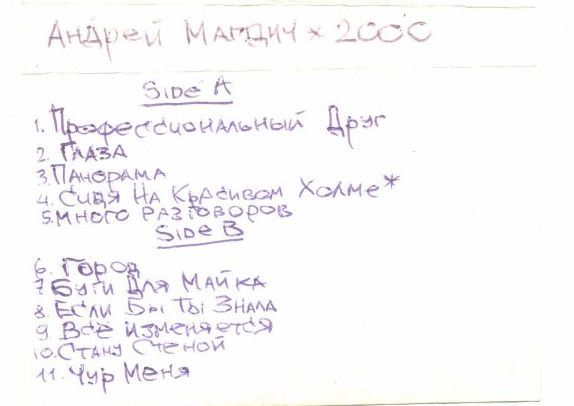 Андрей Магдич × 2000
Side A
1. Профессиональный Друг
2. Глаза
3. Панорама
4. Сидя На Красивом Холме*
5. Много разговоров
Side B
6. Город
7 Буги Для Майка
8. Если Бы Ты Знала
9 Всё изменяется
10. Стану Сченой
11. Чур Меня